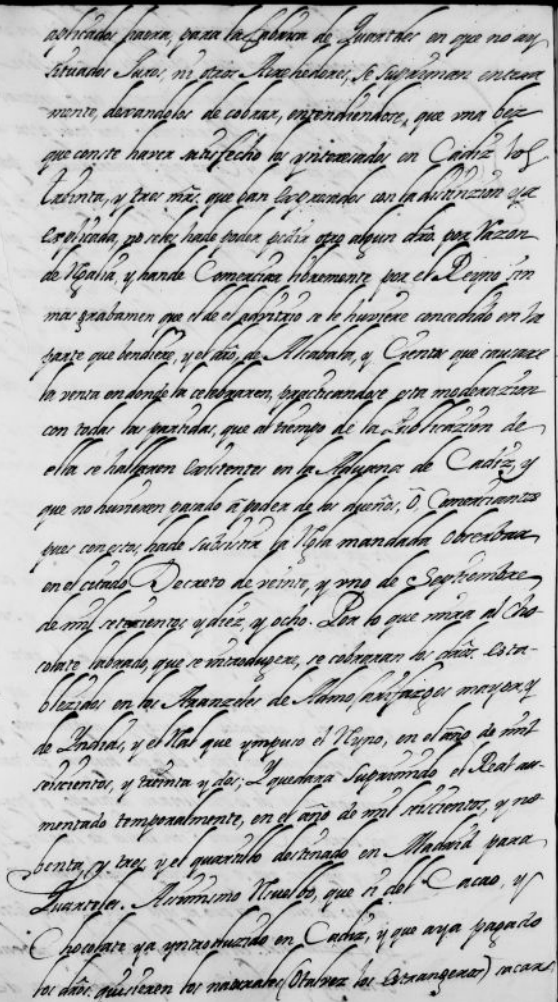 aplicados haora, para la fabrica de Quarteles en que no ay
situados Juros, ni otros Acrehedores, se supriman entera
mente, dexandolos de cobrar, entendiendose, que una bez
que conste haver satisfecho los ynteresados en Cadiz los
treinta, y tres mrs. que ban expresados con la distinzion ya
explicada, no se les ha de poder pedir otro algun dro. por razon
de Regalia, y han de Comerciar libremente por el Reyno sin
mas grabamen que el de el advitrio se le huviere concedido en la
parte que bendiere, y el dro, de Alcabala, y Cientos que causare
la venta en donde la celebraren, practicandose esta moderazion
con todas las partidas, que al tiempo de la Publicazion de
ella se hallaren existentes en la Aduana de Cadiz, y
que no huvieren pasado a poder de los dueños, ô, Comerciantes
pues con estos, ha de subsistir la Regla mandada obserbar
en el citado Decreto de veinte, y uno de Septiembre
de mil setecientos y diez, y ocho. Por lo que mira al Cho
colate labrado, que se introdugere, se cobraran los dros. esta-
blezidos en los Aranzeles de Almojarifazgos mayor, y
de Yndias, y el Real que ympuso el Reyno, en el año de mil
seiscientos, y treinta y dos; Y quedara suprimido el Real au-
mentado temporalmente, en el año de mil seiscientos, y no-
benta, y tres, y el quartillo destinado en Madrid para
Quarteles. Asimismo Resuelbo, que si del Cacao, y
Chocolate ya yntroduzido en Cadiz, y que aya pagado
los dros. quisieren los naturales (o tal vez los estrangeros) sacar